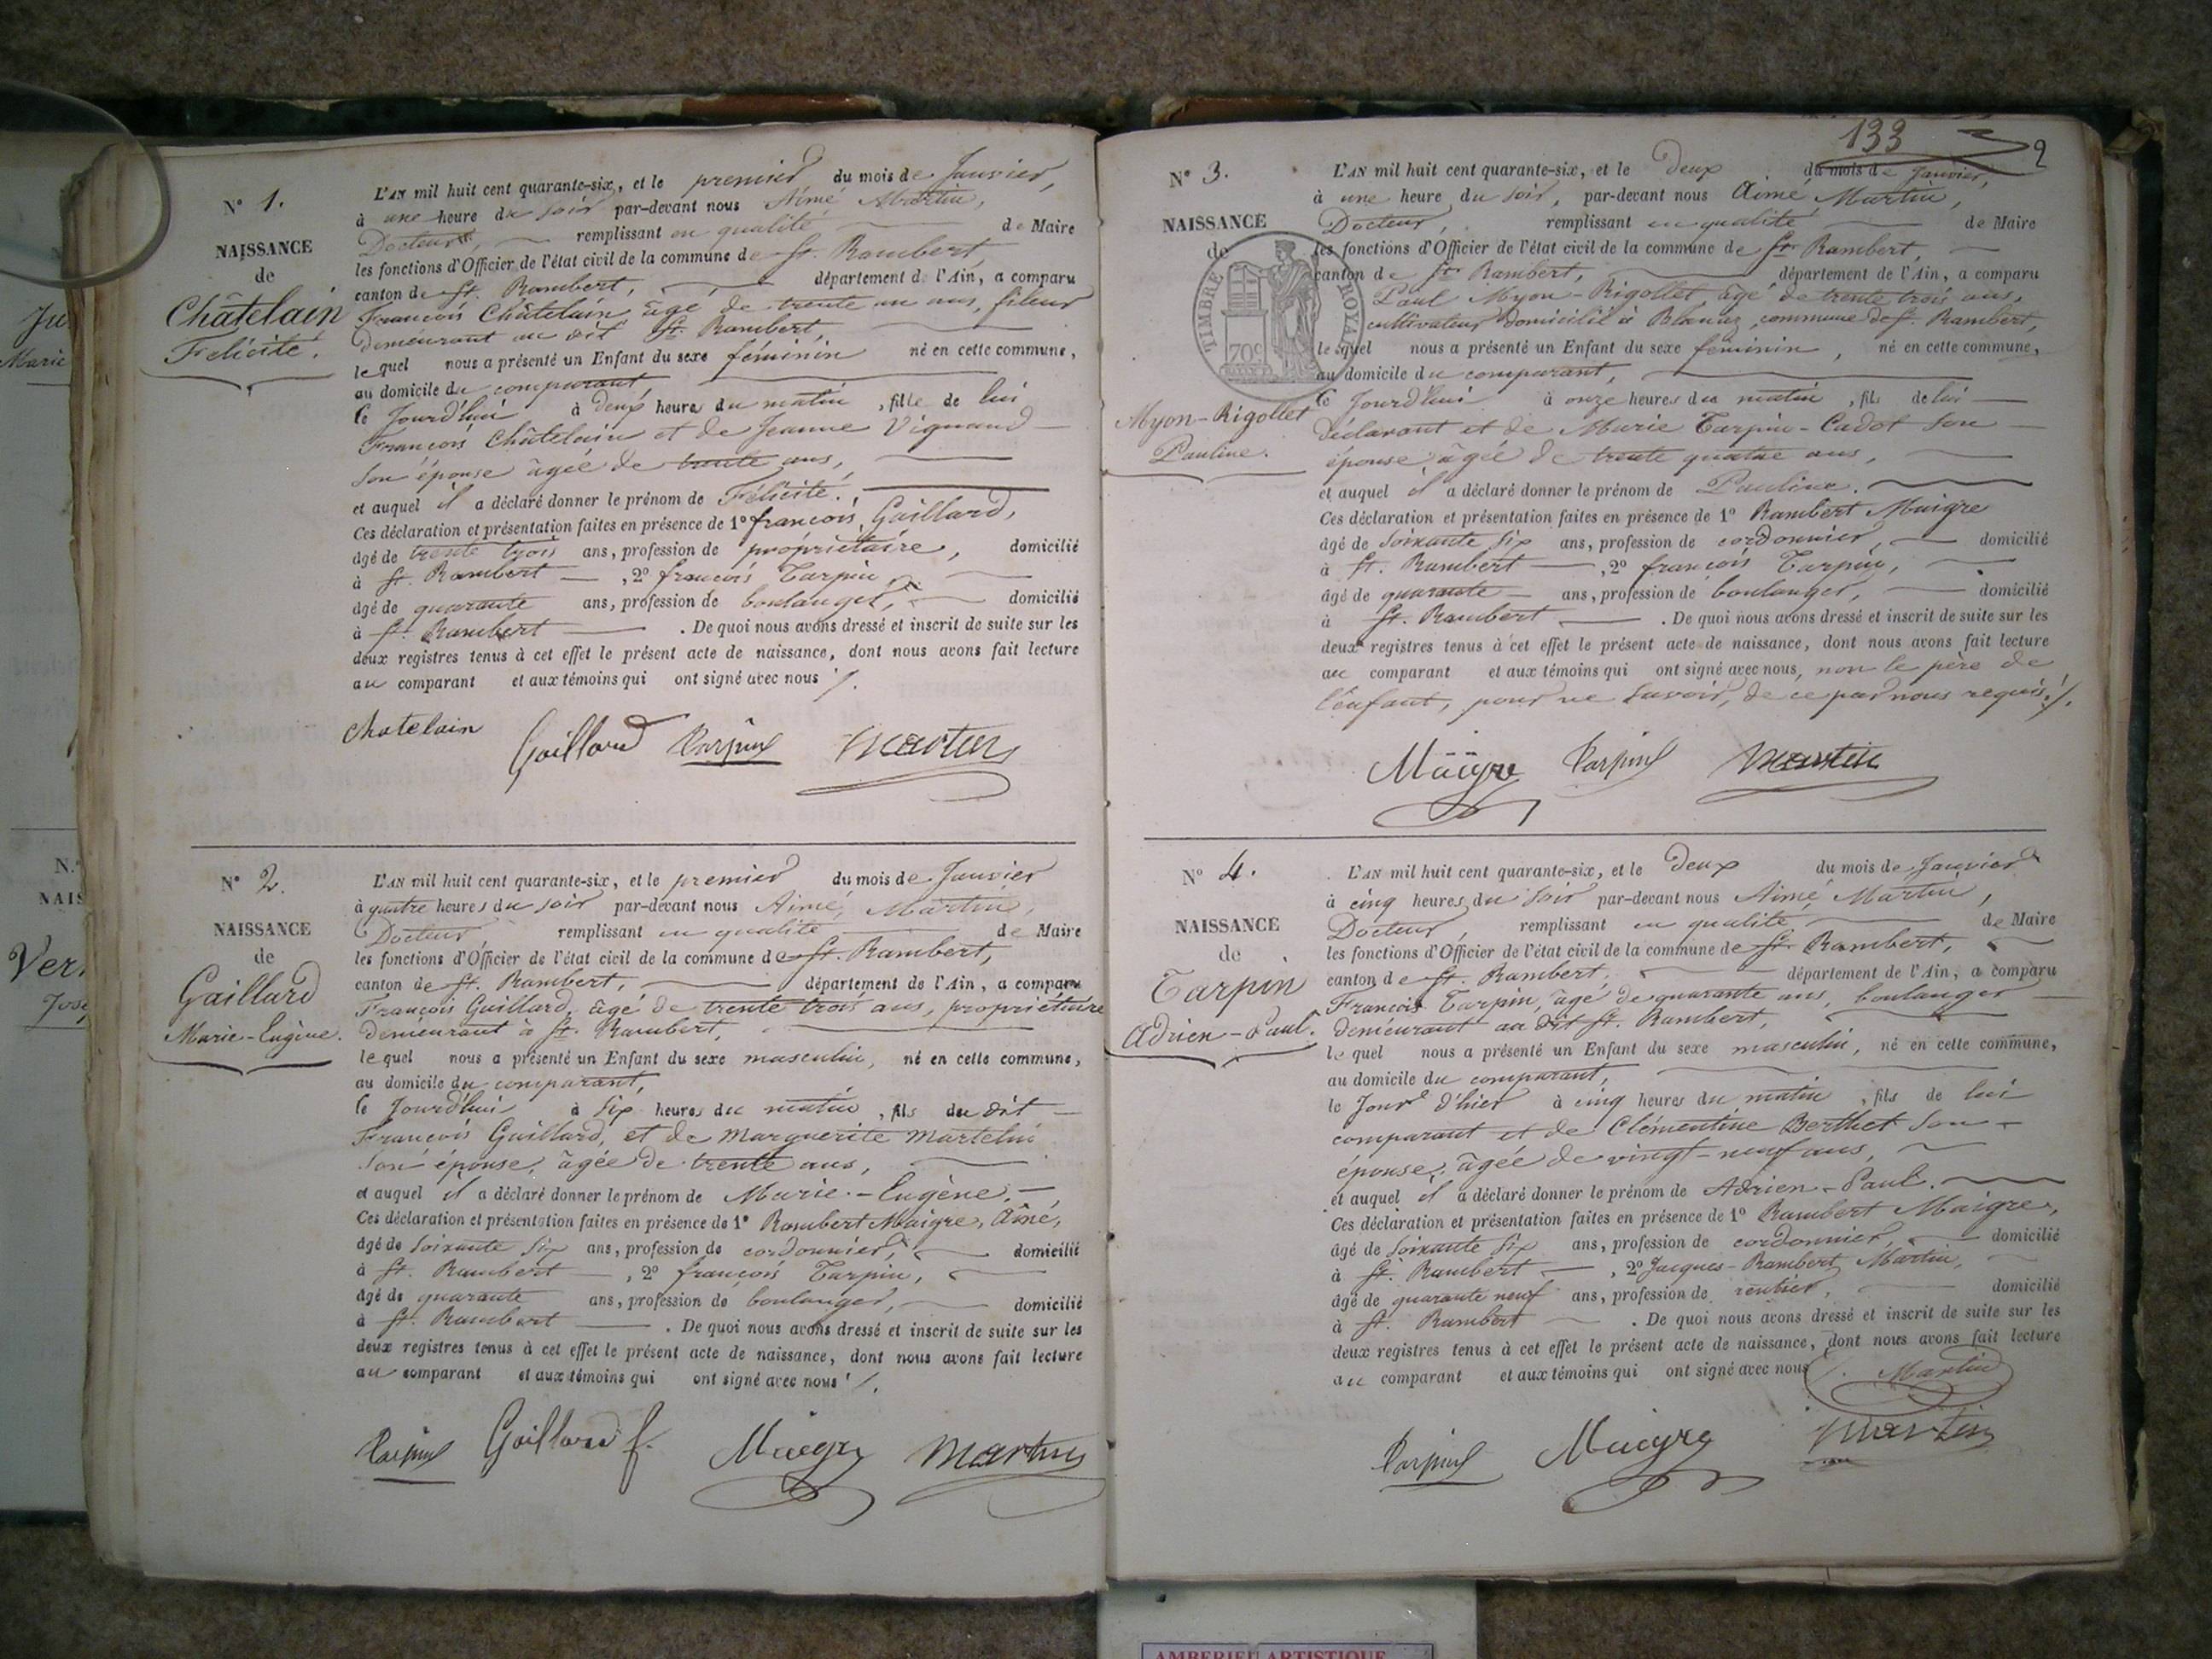 N° 1.
NAISSANCE
de
Châtelain
Félicité.
L'AN mil huit cent quarante-six, et le premier du mois de Janvier,
à une heure du soir par-devant nous Aimé Martin,
Docteur, remplissant en qualité de Maire
les fonctions d'Officier de l'état civil de la commune de St. Rambert,
canton de St. Rambert, département de l'Ain, a comparu
François Châtelain âgé de trente un ans, fileur
demeurant au dit St. Rambert,
lequel nous a présenté un Enfant du sexe féminin né en cette commune,
au domicile du comparant,
ce Jourd'hui à deux heures du matin, fille de lui
François Châtelain et de Jeanne Vignand
son épouse âgée de trente ans,
et auquel il a déclaré donner le prénom de Félicité.
Ces déclaration et présentation faites en présence de 1° françois Gaillard,
âgé de trente trois ans, profession de propriétaire, domicilié
à St. Rambert, 2° françois Tarpin,
âgé de quarante ans, profession de boulanger, domicilié
à St. Rambert. De quoi nous avons dressé et inscrit de suite sur les
deux registres tenus à cet effet le présent acte de naissance, dont nous avons fait lecture
au comparant et aux témoins qui ont signé avec nous /.
Chatelain Gaillard Tarpin Martin
N° 2.
NAISSANCE
de
Gaillard
Marie-Eugène.
L'AN mil huit cent quarante-six, et le premier du mois de Janvier
à quatre heures du soir par-devant nous Aimé Martin,
Docteur remplissant en qualité de Maire
les fonctions d'Officier de l'état civil de la commune de St. Rambert,
canton de St. Rambert, département de l'Ain, a comparu
François Gaillard, âgé de trente trois ans, propriétaire
demeurant à St. Rambert,
lequel nous a présenté un Enfant du sexe masculin, né en cette commune,
au domicile du comparant,
ce Jourd'hui à six heures du matin, fils du dit
François Gaillard, et de Marguerite Martelin
son épouse, âgée de trente ans,
et auquel il a déclaré donner le prénom de Marie-Eugène.
Ces déclaration et présentation faites en présence de 1° Rambert Maigre, Aîné,
âgé de soixante six ans, profession de cordonnier, domicilié
à St. Rambert, 2° françois Tarpin,
âgé de quarante ans, profession de boulanger, domicilié
à St. Rambert. De quoi nous avons dressé et inscrit de suite sur les
deux registres tenus à cet effet le présent acte de naissance, dont nous avons fait lecture
au comparant et aux témoins qui ont signé avec nous /.
Tarpin Gaillard f. Maigre Martin
133
2
N° 3.
NAISSANCE
de
TIMBRE ROYAL
70c
Myon-Rigollet
Pauline.
L'AN mil huit cent quarante-six, et le deux du mois de Janvier,
à une heure du soir, par-devant nous Aimé Martin,
Docteur, remplissant en qualité de Maire
les fonctions d'Officier de l'état civil de la commune de St. Rambert,
canton de St. Rambert, département de l'Ain, a comparu
Paul Myon-Rigollet, âgé de trente trois ans,
cultivateur domicilié à Blanaz, commune de St. Rambert,
lequel nous a présenté un Enfant du sexe féminin, né en cette commune,
au domicile du comparant,
ce Jourd'hui à onze heures du matin, fils de lui
déclarant et de Marie Tarpin-Cadot son
épouse âgée de trente quatre ans,
et auquel il a déclaré donner le prénom de Pauline.
Ces déclaration et présentation faites en présence de 1° Rambert Maigre
âgé de soixante six ans, profession de cordonnier, domicilié
à St. Rambert, 2° françois Tarpin,
âgé de quarante ans, profession de boulanger, domicilié
à St. Rambert. De quoi nous avons dressé et inscrit de suite sur les
deux registres tenus à cet effet le présent acte de naissance, dont nous avons fait lecture
au comparant et aux témoins qui ont signé avec nous, non le père de
l'enfant, pour ne savoir, de ce par nous requis /.
Maigre Tarpin Martin
N° 4.
NAISSANCE
de
Tarpin
Adrien-Paul.
L'AN mil huit cent quarante-six, et le deux du mois de Janvier
à cinq heures du soir par-devant nous Aimé Martin,
Docteur, remplissant en qualité de Maire
les fonctions d'Officier de l'état civil de la commune de St. Rambert,
canton de St. Rambert, département de l'Ain, a comparu
François Tarpin, âgé de quarante ans, boulanger
demeurant au dit St. Rambert,
lequel nous a présenté un Enfant du sexe masculin, né en cette commune,
au domicile du comparant,
le Jour d'hier à cinq heures du matin, fils de lui
comparant et de Clémentine Berthet son
épouse, âgée de vingt-neuf ans,
et auquel il a déclaré donner le prénom de Adrien-Paul.
Ces déclaration et présentation faites en présence de 1° Rambert Maigre,
âgé de soixante six ans, profession de cordonnier, domicilié
à St. Rambert, 2° Jacques-Rambert Martin,
âgé de quarante neuf ans, profession de rentier, domicilié
à St. Rambert. De quoi nous avons dressé et inscrit de suite sur les
deux registres tenus à cet effet le présent acte de naissance, dont nous avons fait lecture
au comparant et aux témoins qui ont signé avec nous /. Martin
Tarpin Maigre Martin
AMBERIEU ARTISTIQUE